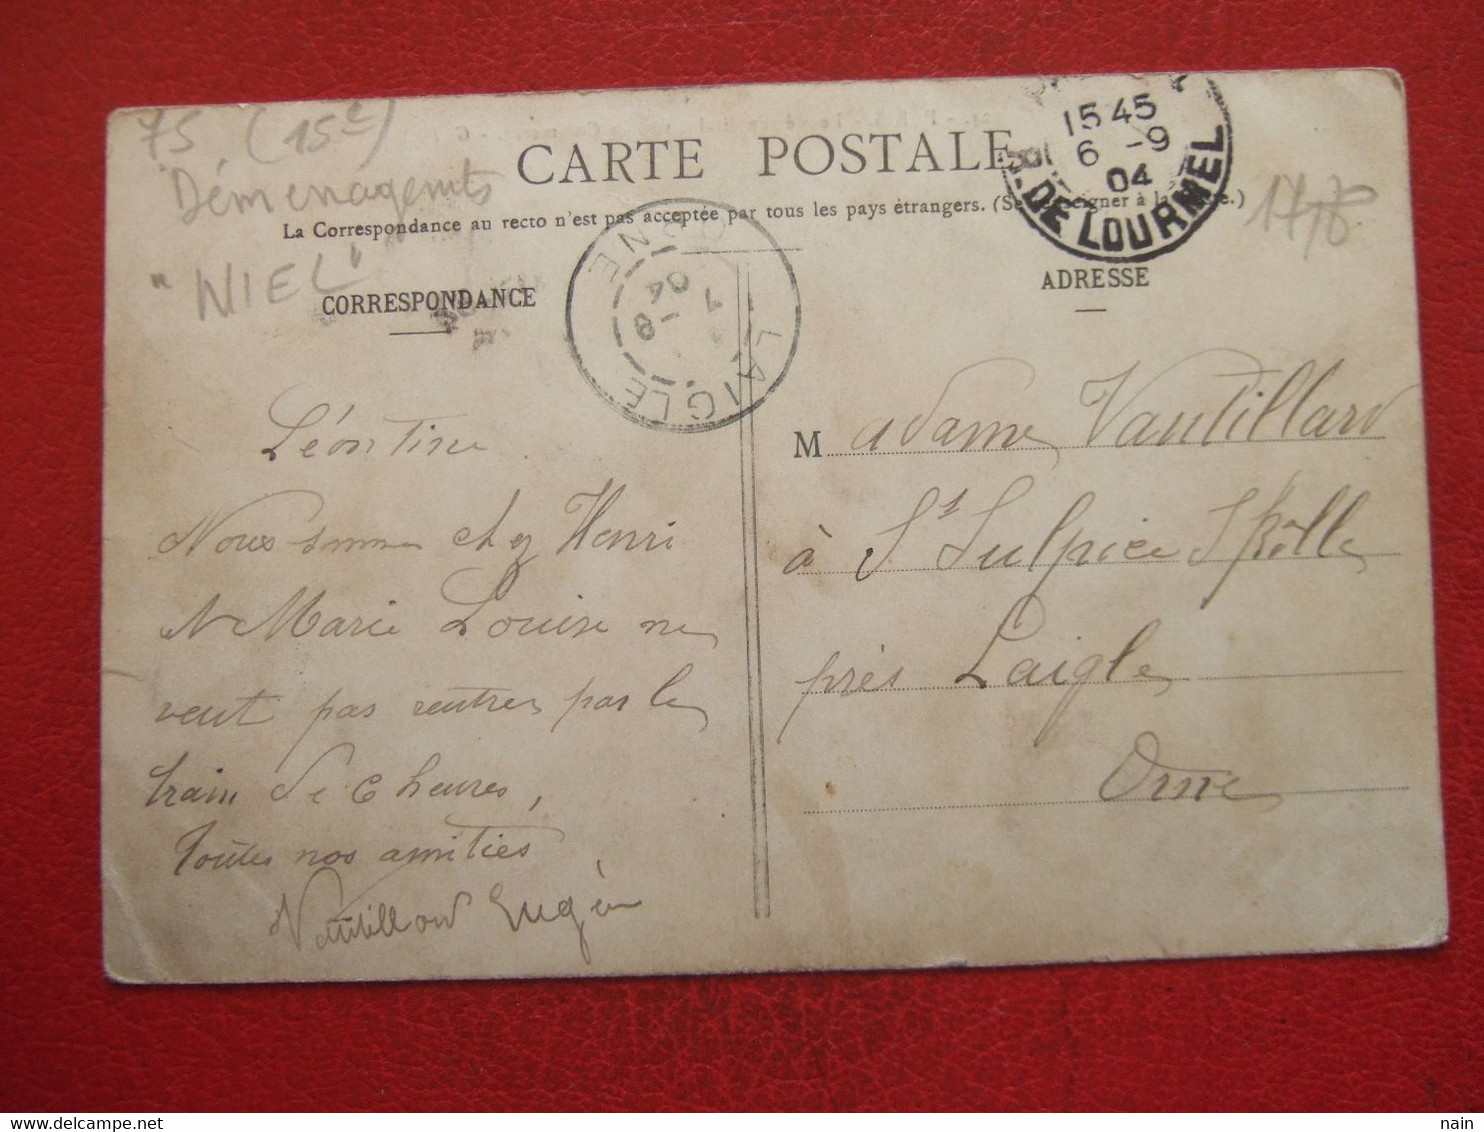 75 (15e)
Démenagements
"NIEL"
CARTE POSTALE
La Correspondance au recto n'est pas acceptée par tous les pays étrangers. (Se renseigner à la Poste.)
15 45
6 -9
04
DE LOURMEL
CORRESPONDANCE
LAIGLE
ORNE
7 -9
04
ADRESSE
Léontine
Nous sommes chez Henri
Marie Louise ne
veut pas rentrer par le
train de 6 heures,
toutes nos amitiés
Vautillard Eugène
Madame Vautillard
à St Sulpice S Rille
près Laigle
Orne
nain